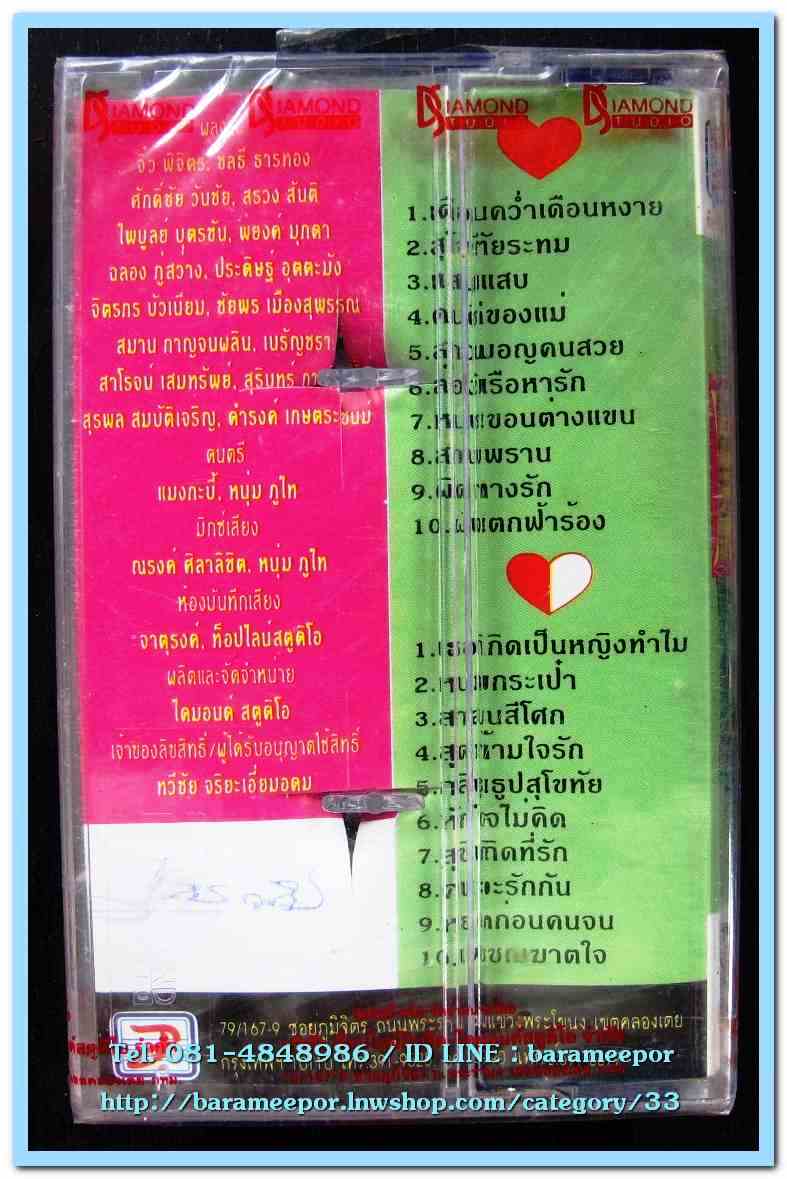 DIAMOND STUDIO DIAMOND STUDIO DIAMOND STUDIO DIAMOND STUDIO
จิ๋ว พิจิตร, ชลธี ธารทอง
ศักดิ์ชัย วันชัย, สรวง สันติ
ไพบูลย์ บุตรขัน, พยงค์ มุกดา
ฉลอง ภู่สว่าง, ประดิษฐ์ อุตตะมัง
จิตรกร บัวเนียม, ชัยพร เมืองสุพรรณ
สมาน กาญจนผลิน, เบรัญชรา
สาโรจน์ เสมทรัพย์, สุรินทร์
สุรพล สมบัติเจริญ, ดำรงค์
ดนตรี
แมงกะบี้, หนุ่ม ภูไท
มิกซ์เสียง
ณรงค์ ศิลาลิขิต, หนุ่ม ภูไท
ห้องบันทึกเสียง
จาตุรงค์, ท็อปไลน์สตูดิโอ
ผลิตและจัดจำหน่าย
ไดมอนด์ สตูดิโอ
เจ้าของลิขสิทธิ์/ผู้ได้รับอนุญาตใช้สิทธิ์
ทวีชัย จริยะเอี่ยมอุดม
1.เดือนคว่ำเดือนหงาย
2.สุโขทัยระทม
3.แสบแสบ
4.คนดีของแม่
5.สาวมอญคนสวย
6.ล่องเรือหารัก
7.หนาย​ขอนต่างแขน
8.สามพราน
9.ผิดทางรัก
10.ฝนตกฟ้าร้อง
1.เธอเกิดเป็นหญิงทำไม
2.หนุ่มกระเป๋า
3.สายฝนสีโศก
4.สุดห้ามใจรัก
5.กลิ่นธูปสุโขทัย
6.หักใจไม่คิด
7.สุขเกิดที่รัก
8.คนจะรักกัน
9.หยุดก่อนคนจน
10.เพชฌฆาตใจ
79/167-9 ซอยภูมิจิตร ถนนพระราม แขวงพระโขนง เขตคลองเตย
Tel. 081-4848986 / ID LINE : barameepor
http://barameepor.lnwshop.com/category/33